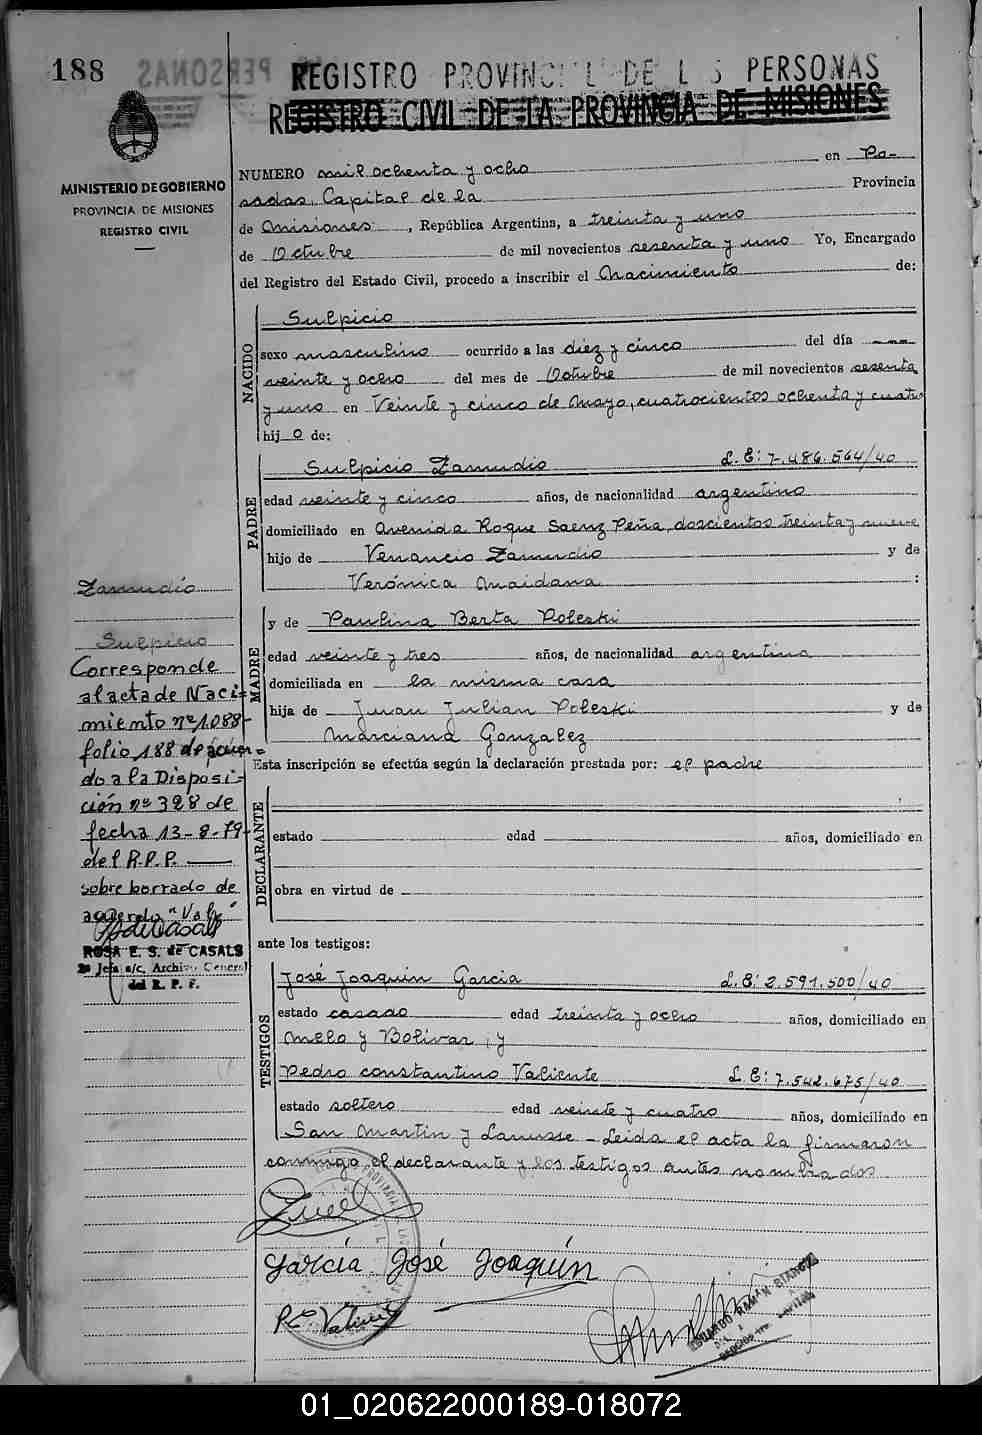 188
REGISTRO PROVINCIAL DE LAS PERSONAS
REGISTRO CIVIL DE LA PROVINCIA DE MISIONES
MINISTERIO DE GOBIERNO
PROVINCIA DE MISIONES
REGISTRO CIVIL
NUMERO mil ochenta y ocho en Po-
sadas, Capital de la Provincia
de Misiones, República Argentina, a treinta y uno
de Octubre de mil novecientos sesenta y uno Yo, Encargado
del Registro del Estado Civil, procedo a inscribir el Nacimiento de:
NACIDO
Sulpicio
sexo masculino ocurrido a las diez y cinco del día
veinte y ocho del mes de Octubre de mil novecientos sesenta
y uno en Veinte y cinco de Mayo, cuatrocientos ochenta y cuatro
hijo de:
PADRE
Sulpicio Zamudio L.E: 7.486.564/40
edad veinte y cinco años, de nacionalidad argentino
domiciliado en Avenida Roque Saenz Peña, doscientos treinta y nueve
hijo de Venancio Zamudio y de
Verónica Maidana :
MADRE
y de Paulina Berta Poleski
edad veinte y tres años, de nacionalidad argentina
domiciliada en la misma casa
hija de Juan Julian Poleski y de
Marciana Gonzalez
Esta inscripción se efectúa según la declaración prestada por: el padre
DECLARANTE
estado edad años, domiciliado en
obra en virtud de
ante los testigos:
TESTIGOS
José Joaquin Garcia L.E: 2.591.500/40
estado casado edad treinta y ocho años, domiciliado en
Melo y Bolívar, y
Pedro Constantino Valiente L.E: 7.542.675/40
estado soltero edad veinte y cuatro años, domiciliado en
San Martin y Lanusse - Leida el acta la firmaron
conmigo el declarante y los testigos antes nombrados
García José Joaquín
Zamudio
Sulpicio
Corresponde
al acta de Naci=
miento nº 1.088-
folio 188 de acuer=
do a la Disposi=
ción nº 328 de
fecha 13-8-79-
del R.P.P.
sobre borrado de
acuerdo "Vale"
ROSA E. S. de CASALS
2ª Jefa a/c. Archivo General
del R. P. P.
01_020622000189-018072